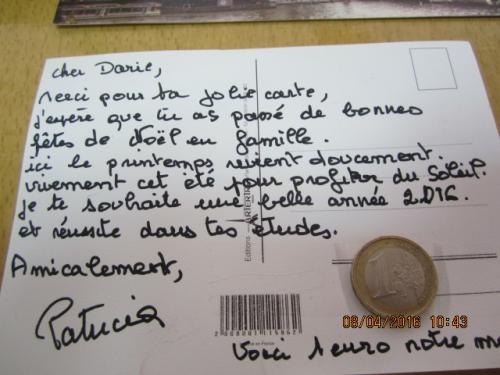 cher Darie,
Merci pour ta jolie carte,
j'espère que tu as passé de bonnes
fêtes de Noël en famille.
ici le printemps revient doucement.
vivement cet été pour profiter du Soleil.
je te souhaite une belle année 2016.
et réussite dans tes études.
Amicalement,
Patricia
Editions ARTER
1
EURO
08/04/2016 10:43
en France
Voici 1 euro notre m